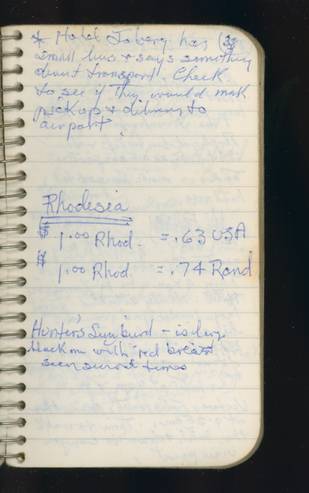 * Hotel Joberg has
small bus & says something
about transport. Check
to see if they would make
pickup & delivery to
airport.
Rhodesia
$1.00 Rhod. = .63 USA
$1.00 Rhod. = .74 Rand
Hunter's Sunbird - is large
black one with red breast
seen several times